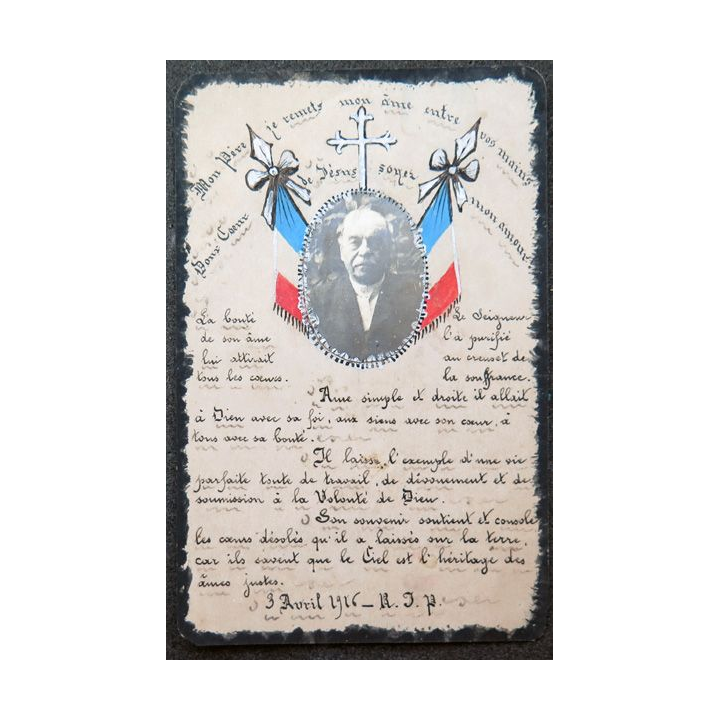 Mon Père je remets mon âme entre vos mains
Doux Coeur de Jésus soyez mon amour
La bonté
de son âme
lui attirait
tous les cœurs.
Le Seigneur
l'a purifié
au creuset de
la souffrance.
Ame simple et droite il allait
à Dieu avec sa foi, aux siens avec son cœur, à
tous avec sa bonté.
Il laisse l'exemple d'une vie
parfaite toute de travail, de dévouement et de
soumission à la Volonté de Dieu.
Son souvenir soutient et console
les cœurs désolés qu'il a laissés sur la terre,
car ils savent que le Ciel est l'héritage des
âmes justes.
3 Avril 1916 – R. I. P.